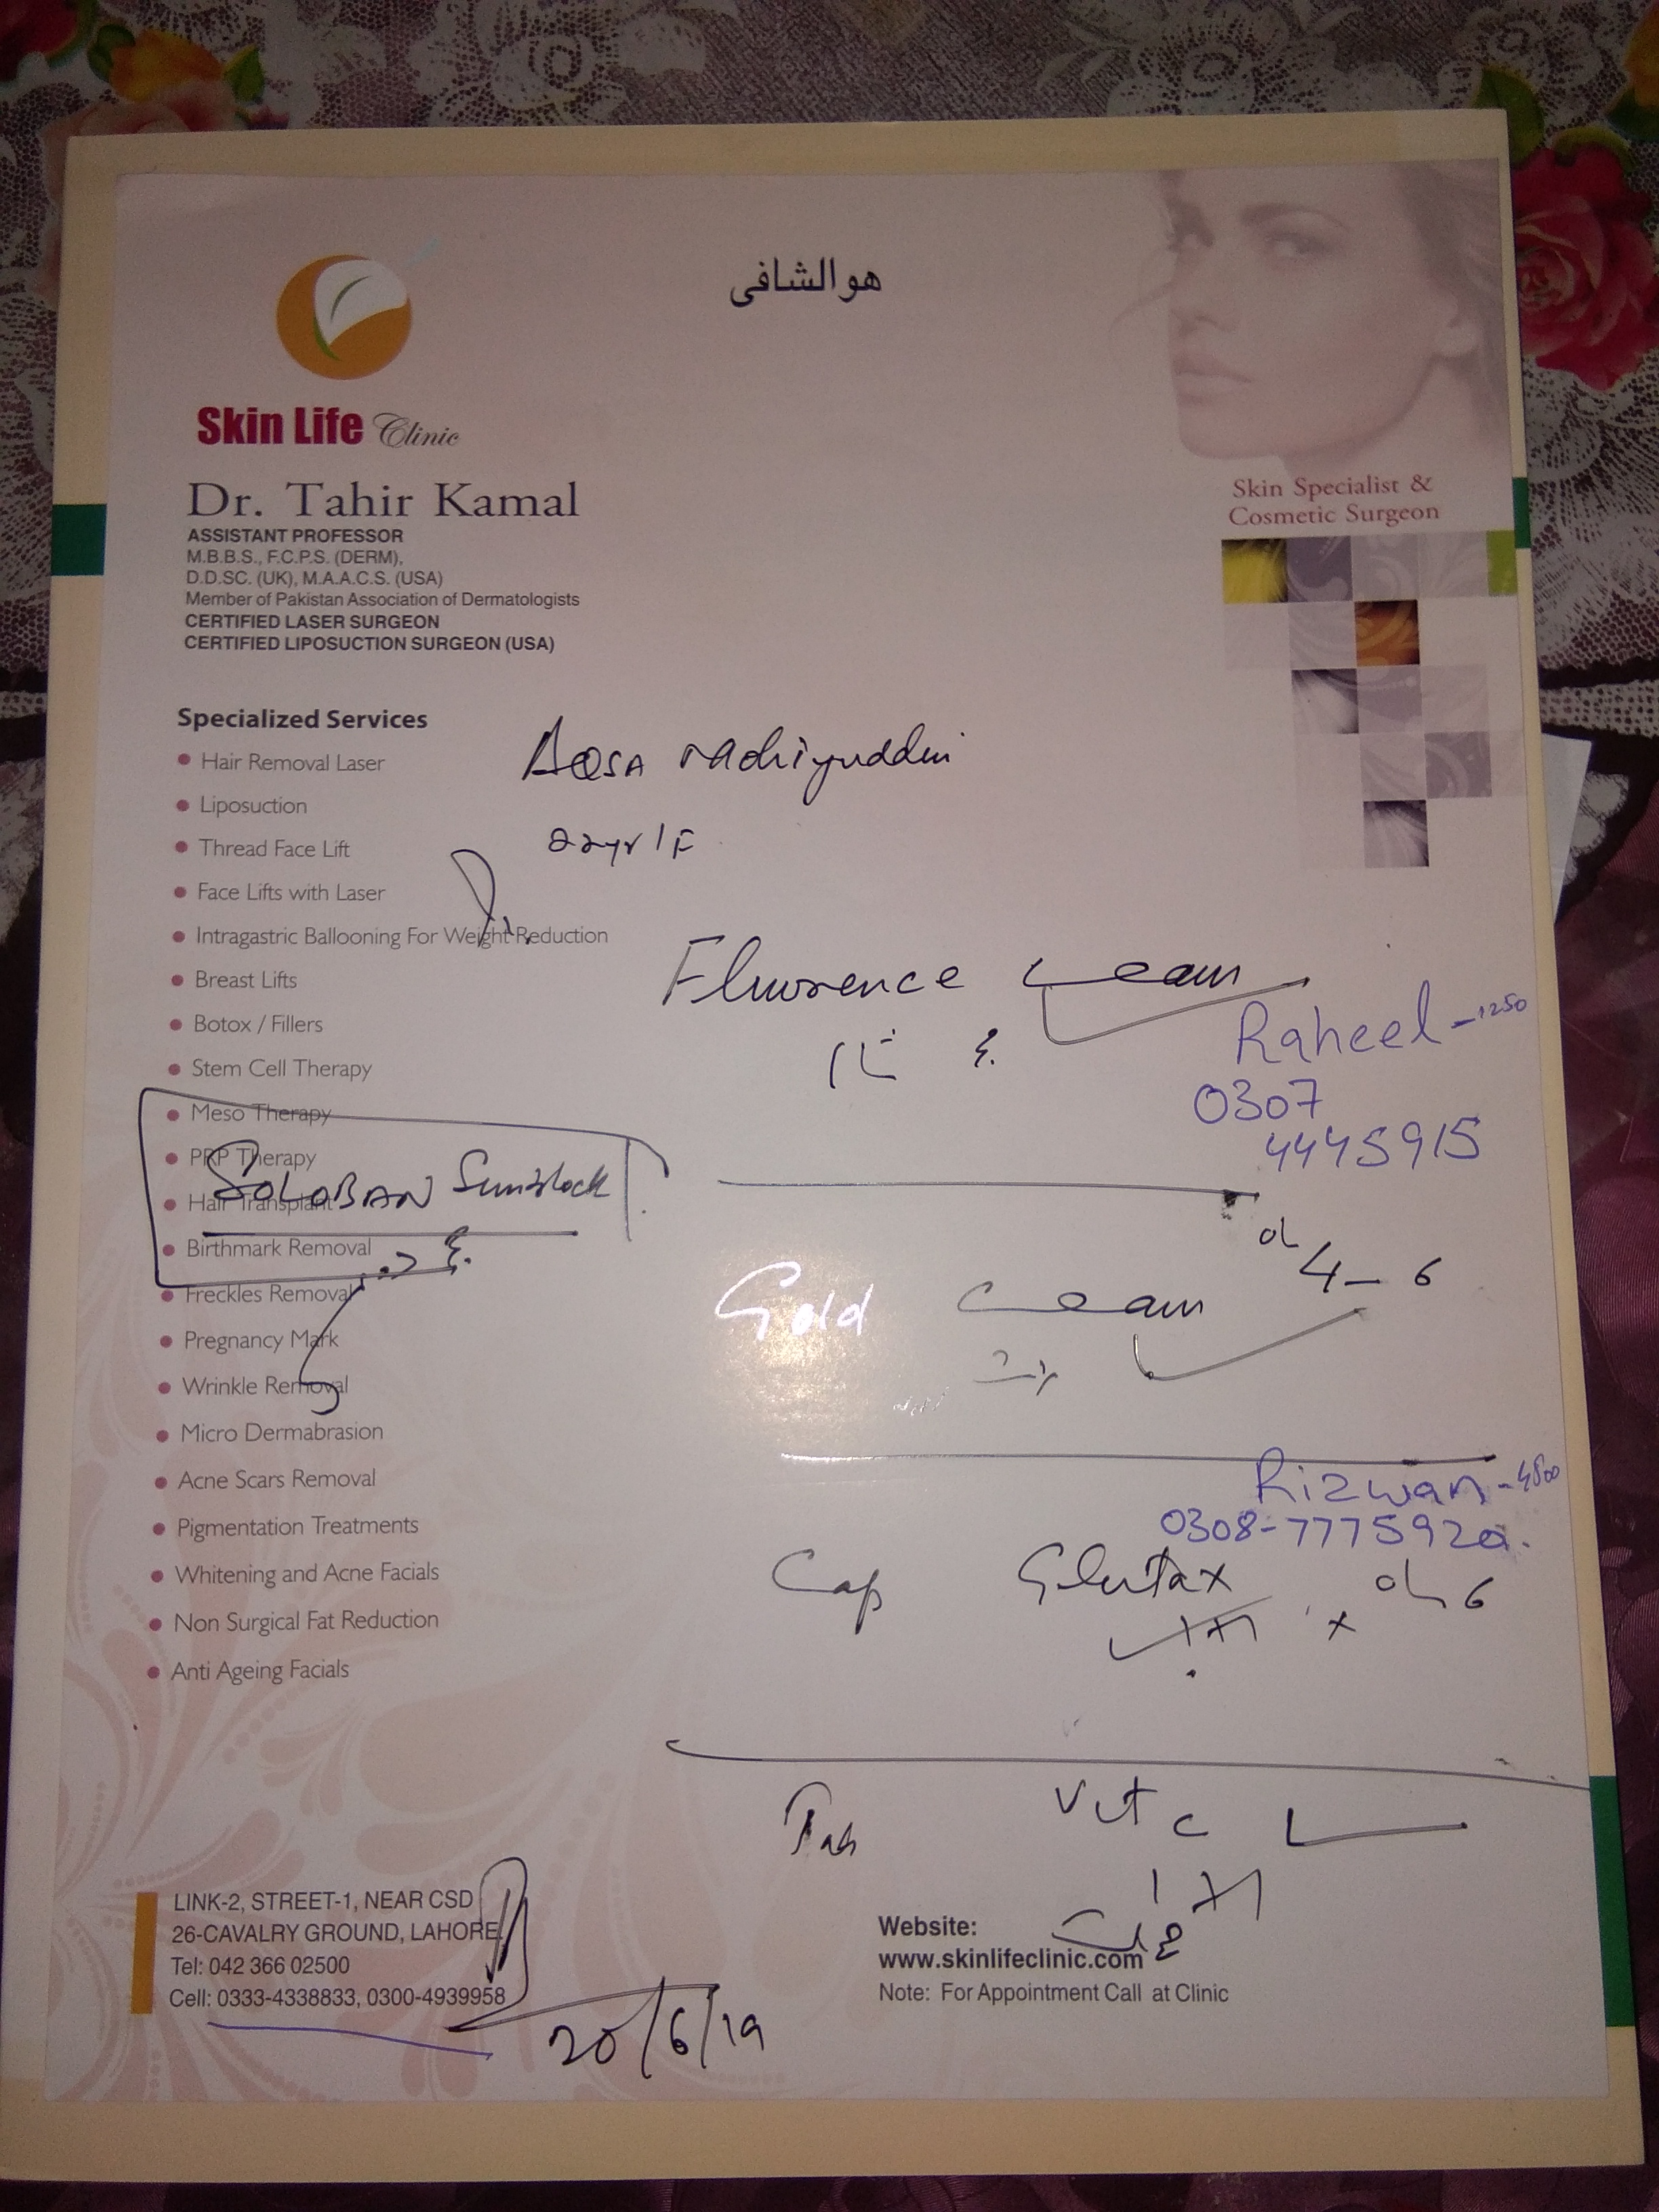 هوالشافی
Skin Life Clinic
Dr. Tahir Kamal
ASSISTANT PROFESSOR
M.B.B.S., F.C.P.S. (DERM),
D.D.SC. (UK), M.A.A.C.S. (USA)
Member of Pakistan Association of Dermatologists
CERTIFIED LASER SURGEON
CERTIFIED LIPOSUCTION SURGEON (USA)
Skin Specialist &
Cosmetic Surgeon
Specialized Services
Hair Removal Laser
Liposuction
Thread Face Lift
Face Lifts with Laser
Intragastric Ballooning For Weight Reduction
Breast Lifts
Botox / Fillers
Stem Cell Therapy
Meso Therapy
PRP Therapy
Hair Transplant
Birthmark Removal
Freckles Removal
Pregnancy Mark
Wrinkle Removal
Micro Dermabrasion
Acne Scars Removal
Pigmentation Treatments
Whitening and Acne Facials
Non Surgical Fat Reduction
Anti Ageing Facials
SOLOBAN Sunblock
AQSA
22yr/F
Cream
Raheel - 1250
0307
4445915
4-6
Gold Cream
Rizwan -
0308-7775920.
Cap Glutax
6
Tab Vit C
1+1
20/6/19
LINK-2, STREET-1, NEAR CSD
26-CAVALRY GROUND, LAHORE.
Tel: 042 366 02500
Cell: 0333-4338833, 0300-4939958
Website:
www.skinlifeclinic.com
Note: For Appointment Call at Clinic